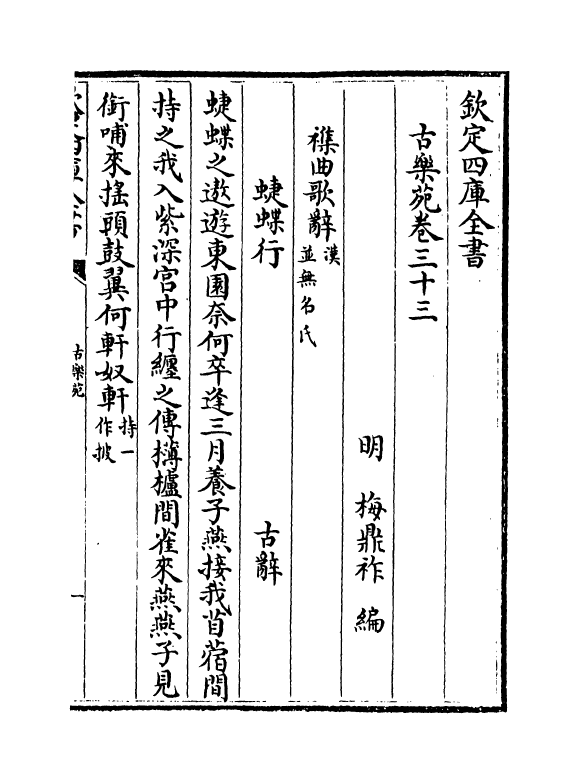 欽定四庫全書
古樂苑卷三十三
明 梅鼎祚 編
襍曲歌辭漢並無名氏
蜨蝶行 古辭
蜨蝶之遨遊東園奈何卒逢三月養子燕接我苜蓿間
持之我入紫深宮中行纏之傳欂櫨間雀來燕燕子見
銜哺來搖頭鼓翼何軒奴軒持一作披
古樂苑
一